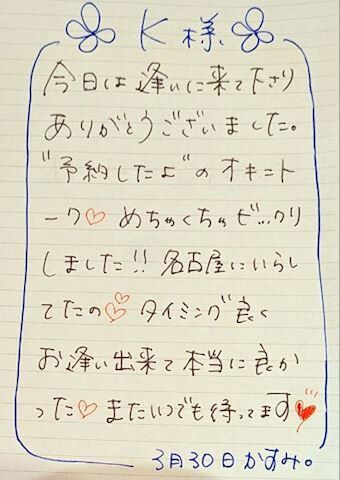 K様
今日は逢いに来て下さり
ありがとうございました。
"予約したよ"のオキニト
ーク♡ めちゃくちゃビックリ
しました!! 名古屋にいらし
てたの♡♡ タイミング良く
お逢い出来て本当に良か
った♡ またいつでも待ってます♥
3月30日 かすみ。